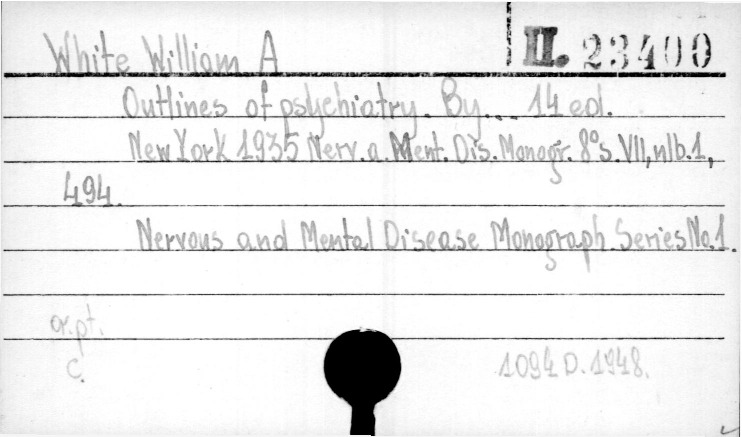 White William A
II. 23400
Outlines of psychiatry. By... 14 ed.
New York 1935 Nerv. a. Ment. Dis. Monogr. 8° s. VII, nlb. 1,
494.
Nervous and Mental Disease Monograph Series No. 1.
or. pt.
c.
1094 D. 1948.